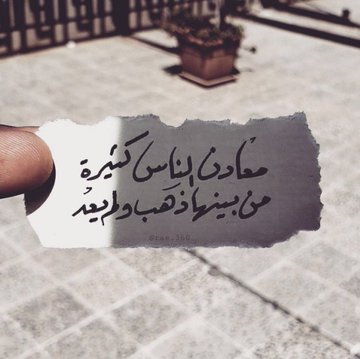 معادن الناس كثيرة
من بينها ذَهَب ولم يعُد
@rae.360